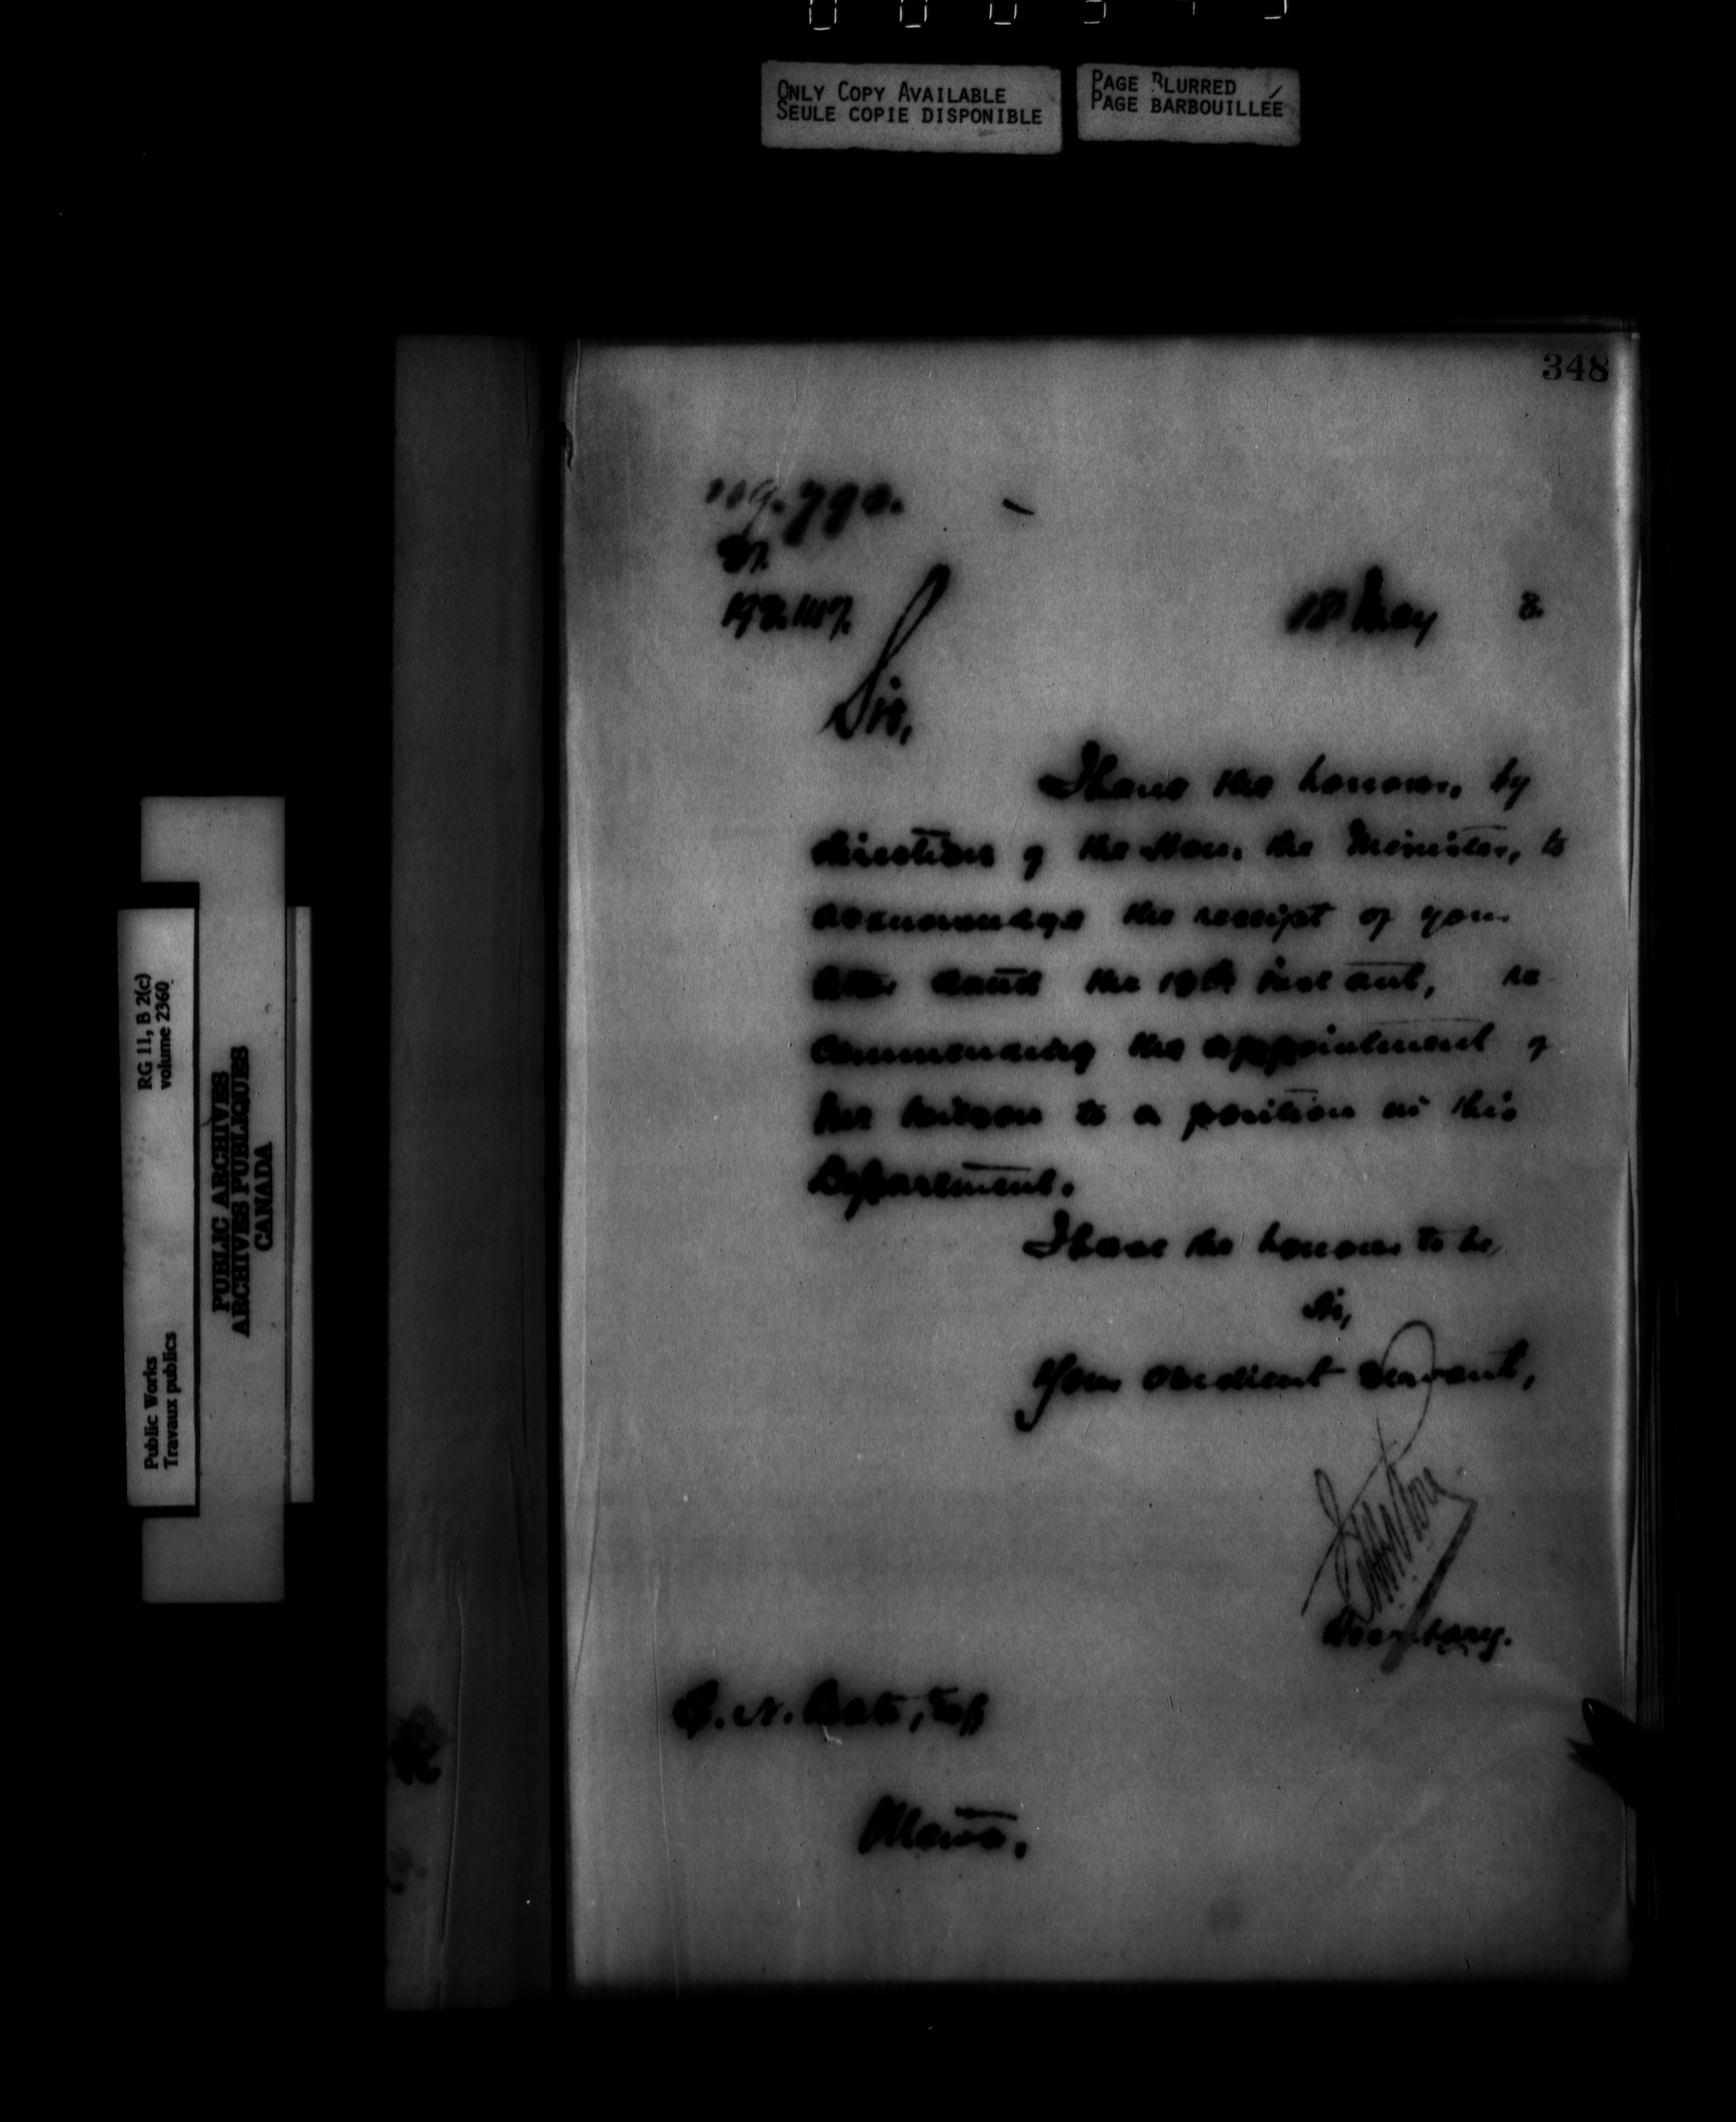 ONLY COPY AVAILABLE
SEULE COPIE DISPONIBLE
PAGE BLURRED
PAGE BARBOUILLÉE
348
18 May 8.
Sir,
I have the honour, by
direction of the Hon. the Minister, to
acknowledge the receipt of your
letter dated the instant, re
commending the appointment of
to a position in this
Department.
I have the honour to be,
Sir,
Your obedient servant,
Secretary.
Ottawa.
RG 11, B 2(c)
volume 2360
Public Works
Travaux publics
PUBLIC ARCHIVES
ARCHIVES PUBLIQUES
CANADA